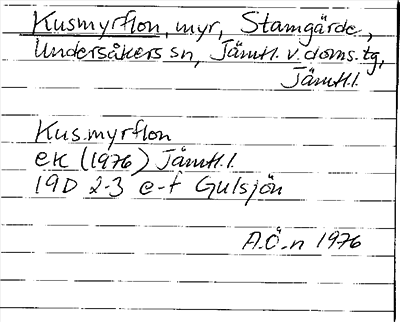 Kusmyrflon, myr, Stamgärde,
Undersåkers sn, Jämtl. v. doms. tg,
Jämtl.l.
Kusmyrflon
ek (1976) Jämtl.l.
19D 2-3 e-f Gulsjön
A.Ö-n 1976